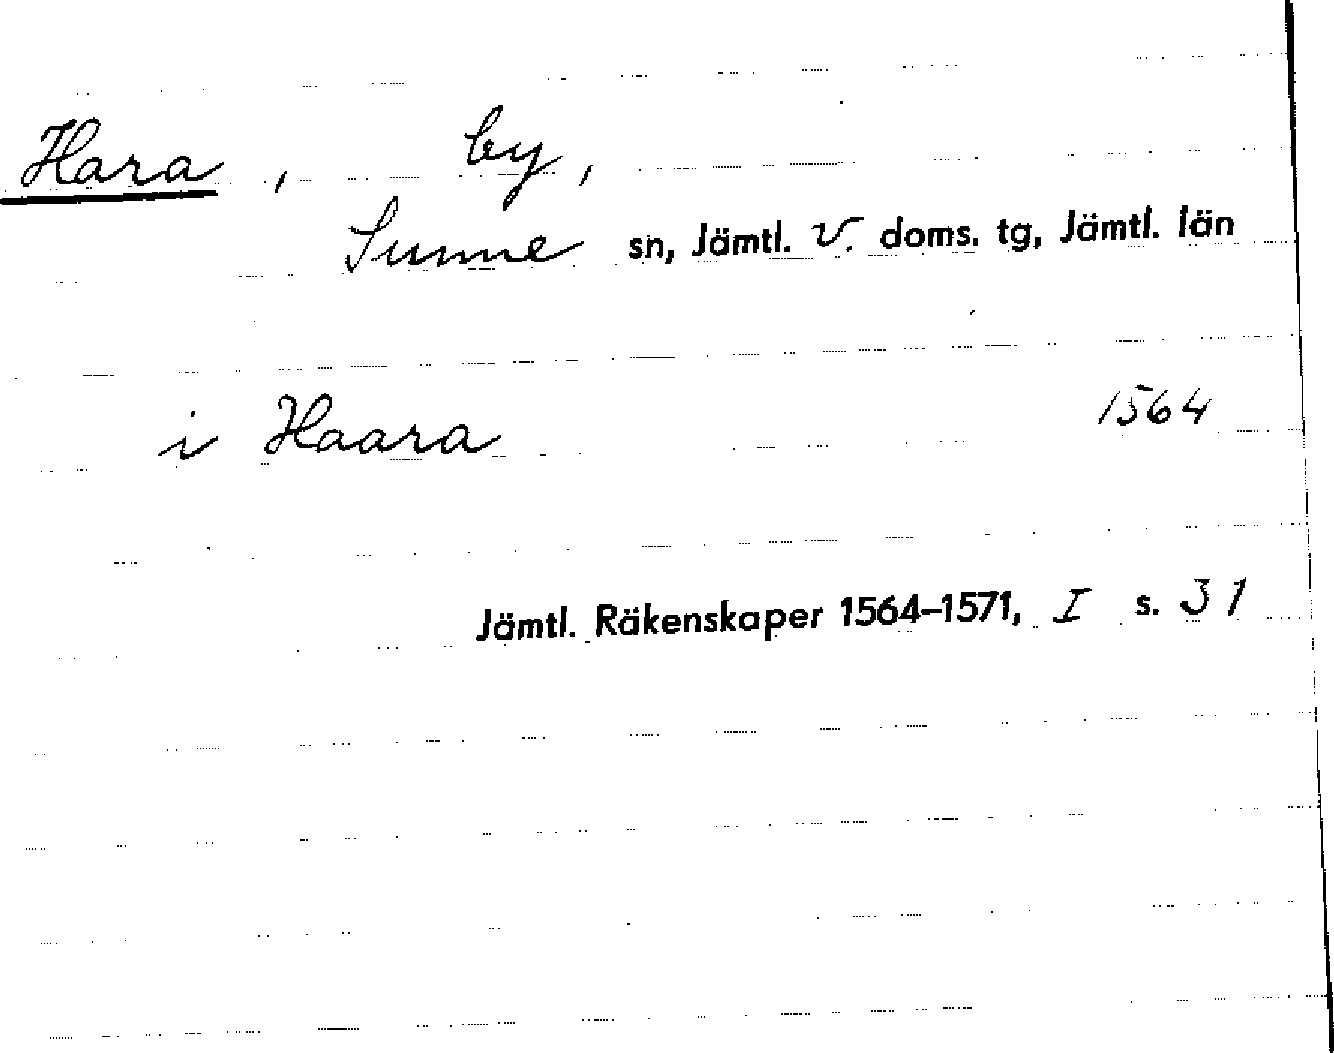 Hara, by,
Sunne sn, Jämtl. V. doms. tg, Jämtl. län
i Haara 1564
Jämtl. Räkenskaper 1564–1571, I s. 31